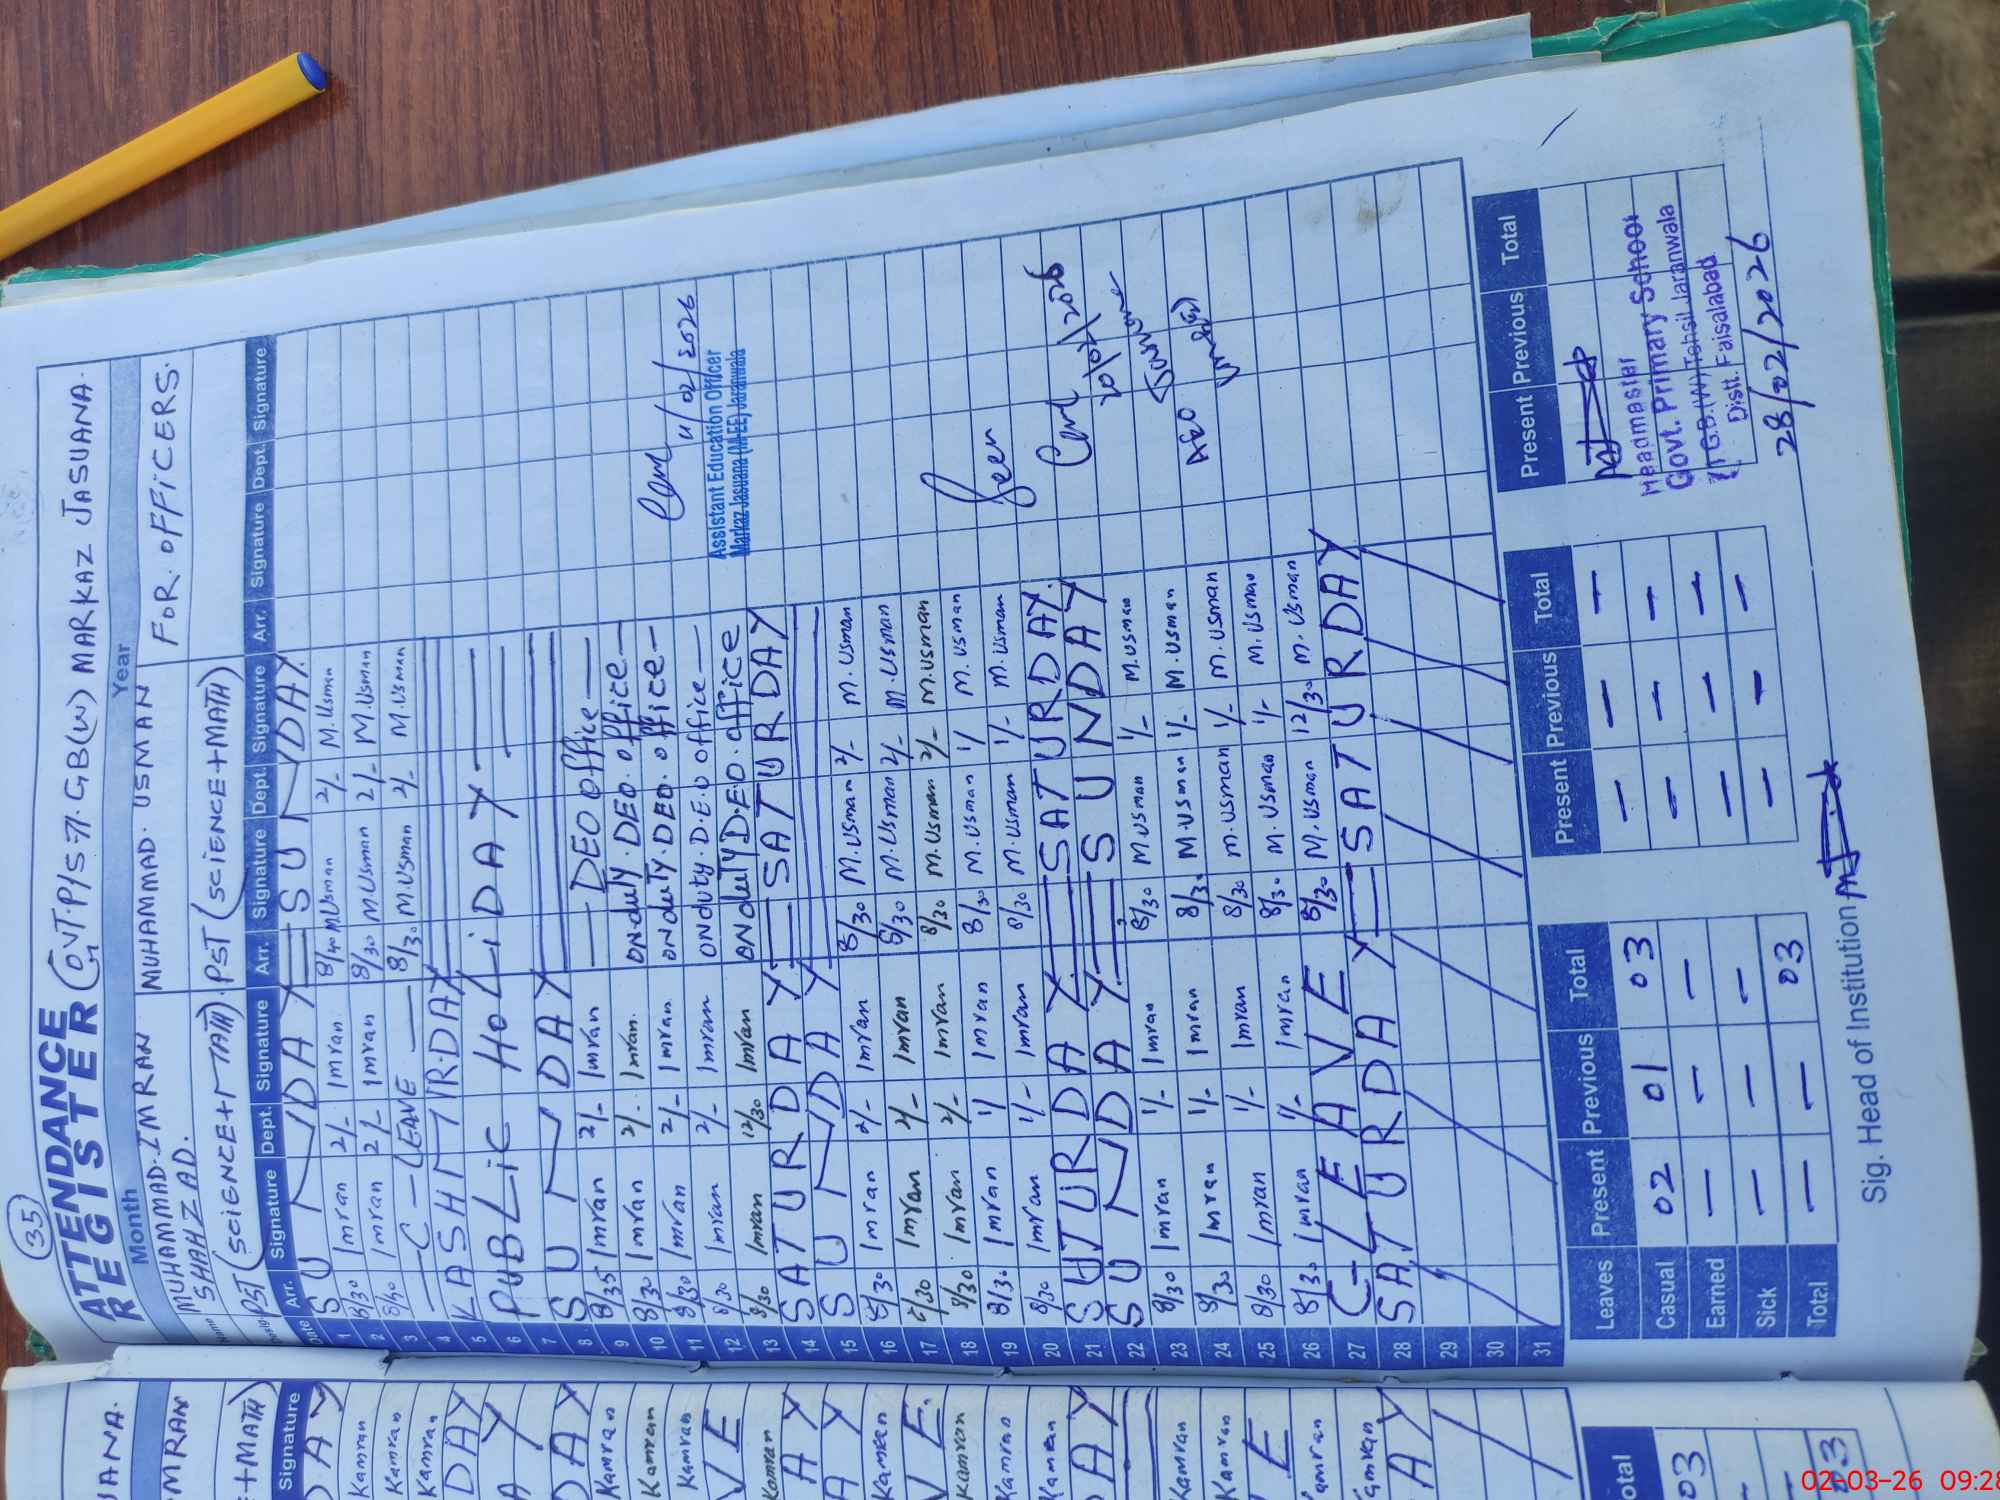 35
ATTENDANCE
REGISTER
GOVT.P/S 71.GB(W) MARKAZ JASUANA.
Month Year
MUHAMMAD.IMRAN SHAHZAD. MUHAMMAD.USMAN FOR.OFFICERS.
PST (SCIENCE+MATH). PST (SCIENCE+MATH)
Date Arr. Signature Dept. Signature Arr. Signature Dept. Signature Arr. Signature Dept. Signature
SUNDAY SUNDAY.
1 8/30 Imran 2/- Imran. 8/40 M.Usman 2/- M.Usman
2 8/40 Imran 2/- Imran 8/30 M.Usman 2/- M.Usman
3 C-LEAVE 8/30 M.Usman 2/- M.Usman
4 KASHMIR.DAY
5 PUBLIC HOLIDAY
6
7 SUNDAY
8 8/35 Imran 2/- Imran DEO office
9 8/30 Imran 2/- Imran. ON duty.DEO.office
10 8/30 Imran 2/- Imran ON duTY.DEO.office
11 8/30 Imran 2/- Imran ON duty.D.E.O office
12 8/30 Imran 12/30 Imran ON duTY D.E.O.office
13 SATURDAY SATURDAY
14 SUNDAY
15 8/30 Imran 2/- Imran 8/30 M.Usman 2/- M.Usman
16 8/30 Imran 2/- Imran 8/30 M.Usman 2/- M.Usman
17 8/30 Imran 2/- Imran 8/30 M.Usman 2/- M.Usman
18 8/30 Imran 1/ Imran 8/30 M.Usman 1/ M.Usman
19 8/30 Imran 1/- Imran 8/30 M.Usman 1/- M.Usman
20 SATURDAY SATURDAY.
21 SUNDAY SUNDAY
22 8/30 Imran 1/- Imran 8/30 M.Usman 1/- M.Usman
23 8/30 Imran 1/- Imran 8/30 M.Usman 1/- M.Usman
24 8/30 Imran 1/- Imran 8/30 M.Usman 1/- M.Usman
25 8/30 Imran 1/- Imran 8/30 M.Usman 1/- M.Usman
26 C-LEAVE 8/30 M.Usman 12/30 M.Usman
27 SATURDAY SATURDAY
28
29
30
31
11/02/2026
Assistant Education Officer
Markaz Jasuana (M-EE) Jaranwala
Seen
20/02/2026
AEO
Leaves Present Previous Total Present Previous Total Present Previous Total
Casual 02 01 03 - - -
Earned - - - - - -
Sick - - - - - -
Total - - 03 - - -
Headmaster
Govt. Primary School
71 G.B.(W) Tehsil Jaranwala
Distt. Faisalabad
28/02/2026
Sig. Head of Institution
UANA.
MRAN
E+MATH)
Signature
DAY
Kamran
Kamran
Kamran
DAY
AY
DAY
Kamran
Kamran
Kamran
VE
Kamran
AY
AY
Kamran
VE.
Kamran
Kamran
Kamran
DAY
Kamran
Kamran
E
Kamran
Kamran
AY
otal
03
-
-
03
02-03-26 09:28